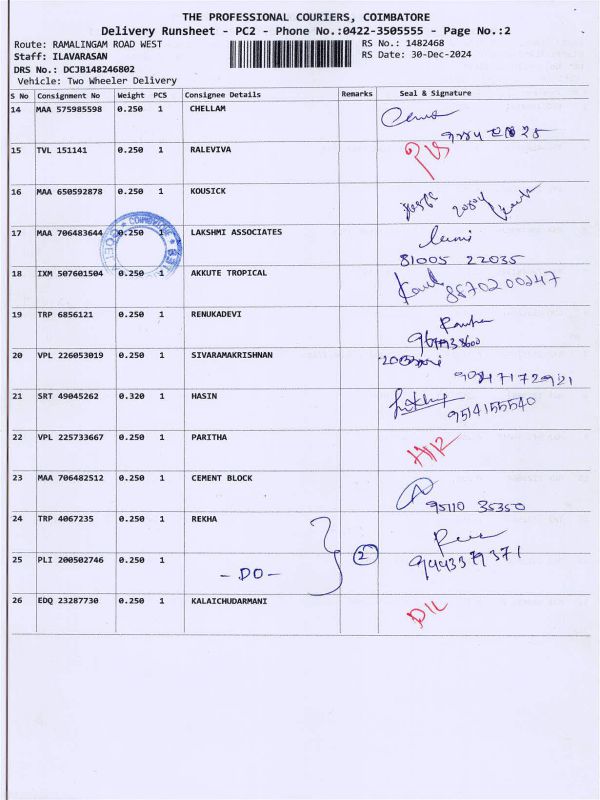 THE PROFESSIONAL COURIERS, COIMBATORE
Delivery Runsheet - PC2 - Phone No.:0422-3505555 - Page No.:2
Route: RAMALINGAM ROAD WEST RS No.: 1482468
Staff: ILAVARASAN RS Date: 30-Dec-2024
DRS No.: DCJB148246802
Vehicle: Two Wheeler Delivery
S No Consignment No Weight PCS Consignee Details Remarks Seal & Signature
14 MAA 575985598 0.250 1 CHELLAM
15 TVL 151141 0.250 1 RALEVIVA
16 MAA 650592878 0.250 1 KOUSICK
17 MAA 706483644 0.250 1 LAKSHMI ASSOCIATES
81005 22035
18 IXM 507601504 0.250 1 AKKUTE TROPICAL
8870200247
19 TRP 6856121 0.250 1 RENUKADEVI
20 VPL 226053019 0.250 1 SIVARAMAKRISHNAN
90847172921
21 SRT 49045262 0.320 1 HASIN
9514155540
22 VPL 225733667 0.250 1 PARITHA
23 MAA 706482512 0.250 1 CEMENT BLOCK
95110 35350
24 TRP 4067235 0.250 1 REKHA
25 PLI 200502746 0.250 1 2 9443379371
- DO -
26 EDQ 23287730 0.250 1 KALAICHUDARMANI
D/L